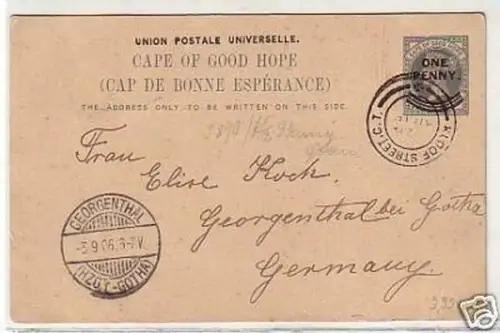 UNION POSTALE UNIVERSELLE.
CAPE OF GOOD HOPE
(CAP DE BONNE ESPÉRANCE)
THE ADDRESS ONLY TO BE WRITTEN ON THIS SIDE.
ONE
PENNY.
KLOOF STREET.C.T.
Frau
Elise Koch.
Georgenthal bei Gotha
Germany.
GEORGENTHAL
-3.9.06.6-7V.
(HZGT.-GOTHA)